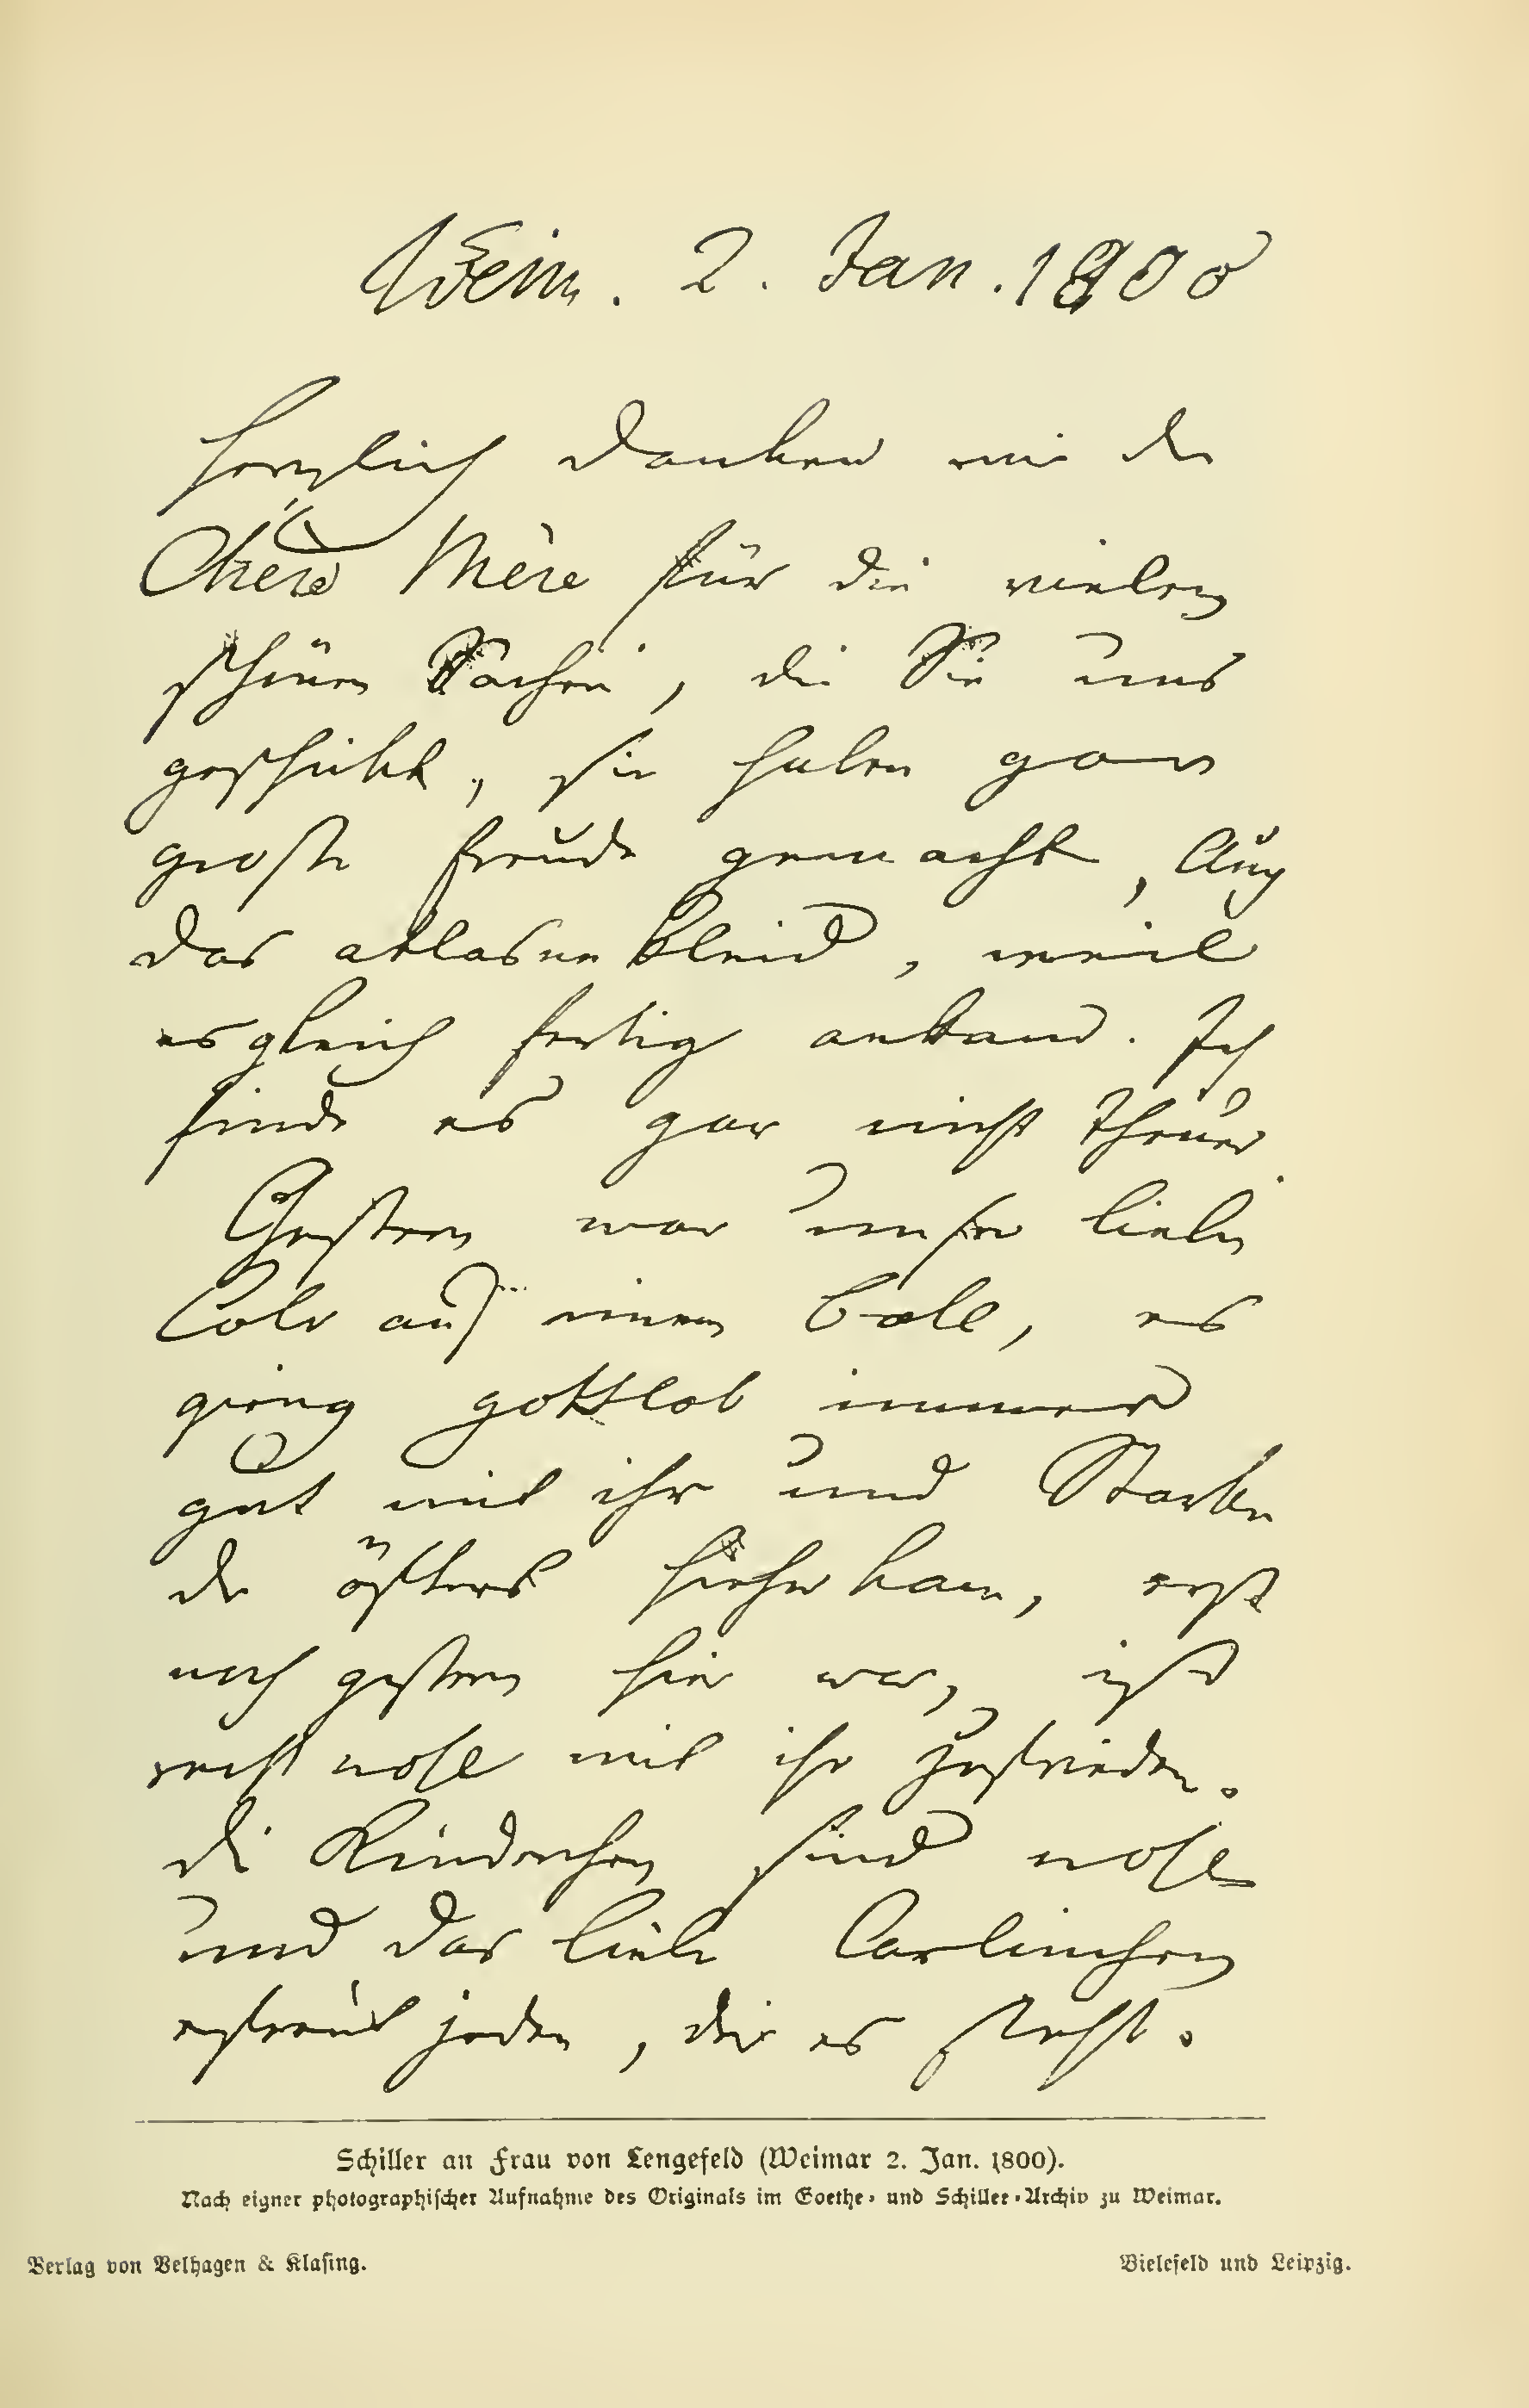 Weim. 2. Jan. 1800
Herzlich danken wir der
Chère Mère für die vielen
schönen Sachen, die Sie uns
geschickt, sie haben gar
große Freude gemacht,
das atlasne Kleid, weil
es gleich fertig ankam. Ich
finde es gar nicht theuer.
Gestern war unsre liebe
Lolo auf einem Balle, es
gieng gottlob immer
gut mit ihr und Starke
der öfters hieher kam, erst
noch gestern hier war, ist
recht wohl mit ihr zufrieden.
die Kinderchen sind wohl
und das liebe Carlinchen
erfreut jeden, der es sieht.
Schiller an Frau von Lengefeld (Weimar 2. Jan. 1800).
Nach eigner photographischer Aufnahme des Originals im Goethe- und Schiller-Archiv zu Weimar.
Verlag von Velhagen & Klasing. Bielefeld und Leipzig.